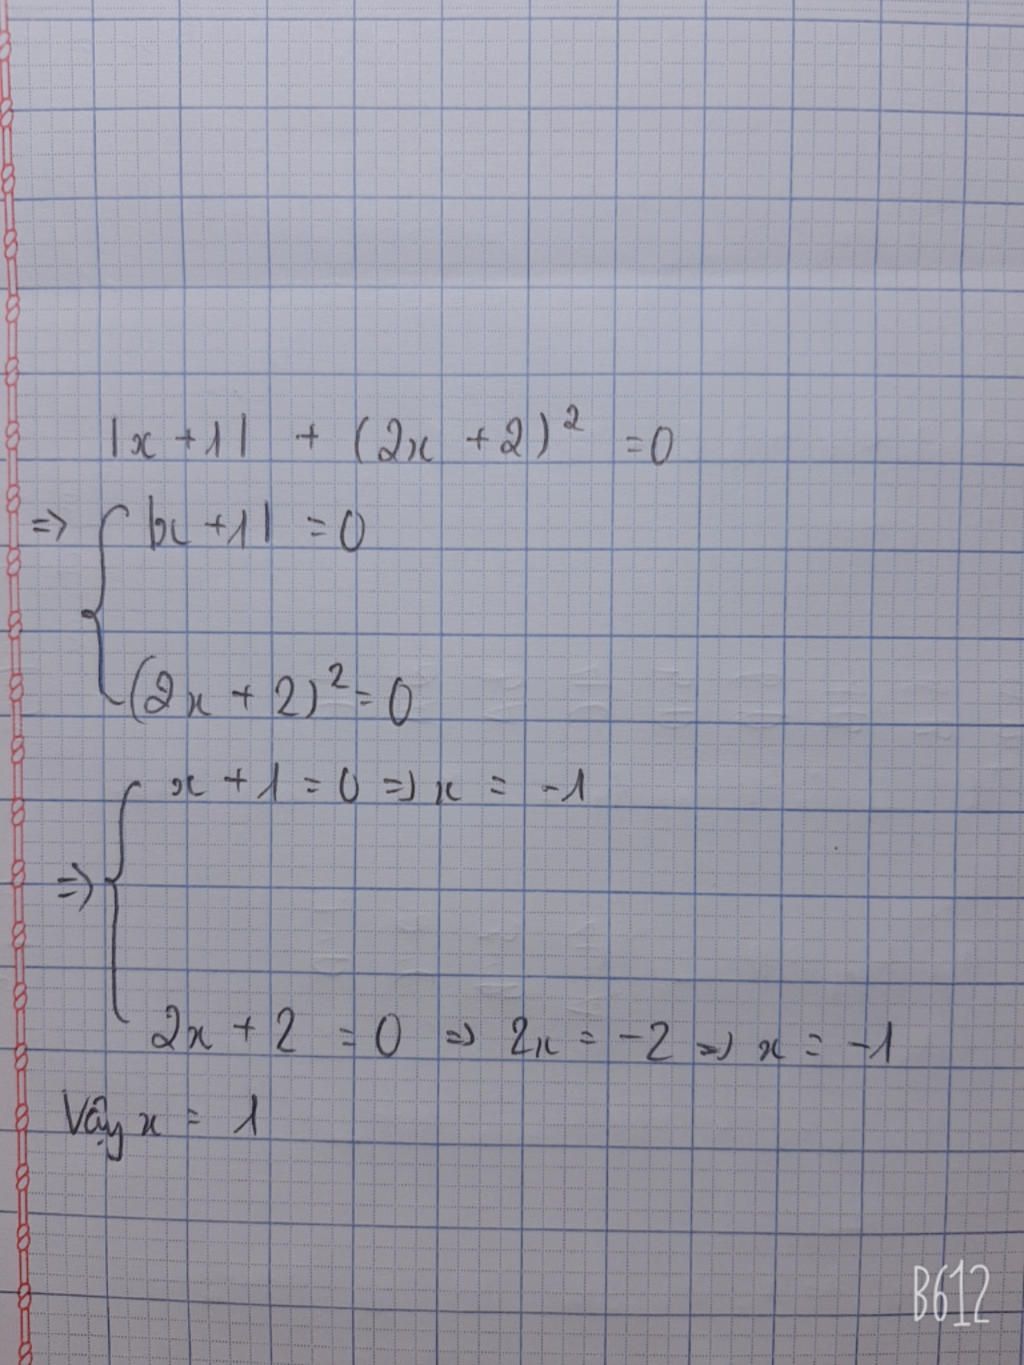 |x + 1| + (2x + 2)² = 0
=> { |x + 1| = 0
(2x + 2)² = 0
x + 1 = 0 => x = -1
=> {
2x + 2 = 0 => 2x = -2 => x = -1
Vậy x = 1
B612